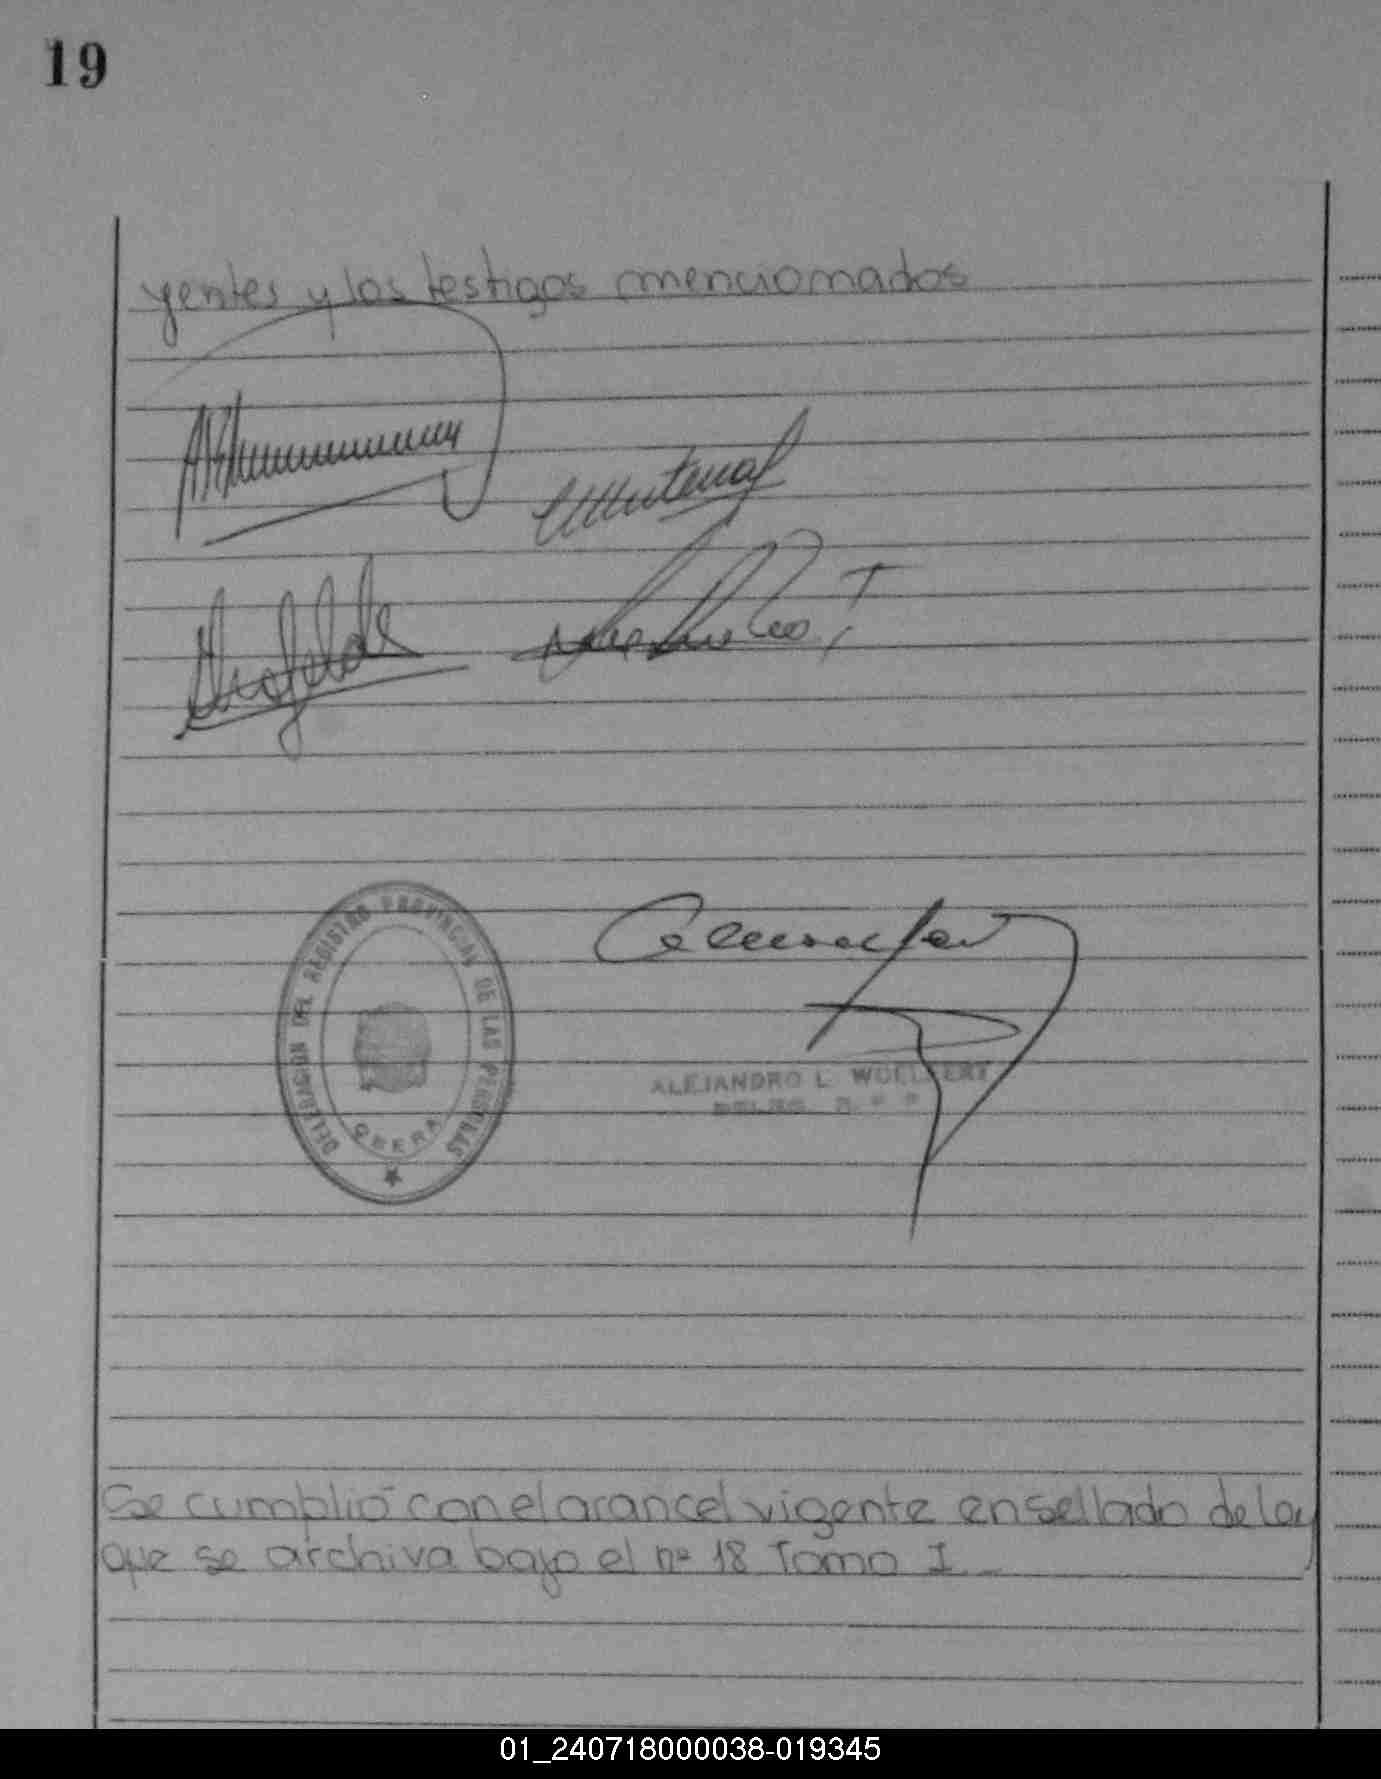 19
yentes y los testigos mencionados
DELEGACION DEL REGISTRO PROVINCIAL DE LAS PERSONAS
OBERA
ALEJANDRO L. WOELFERT
DELEG. R. P. P.
Se cumplió con el arancel vigente en sellado de ley
que se archiva bajo el nº 18 Tomo I.-
01_240718000038-019345